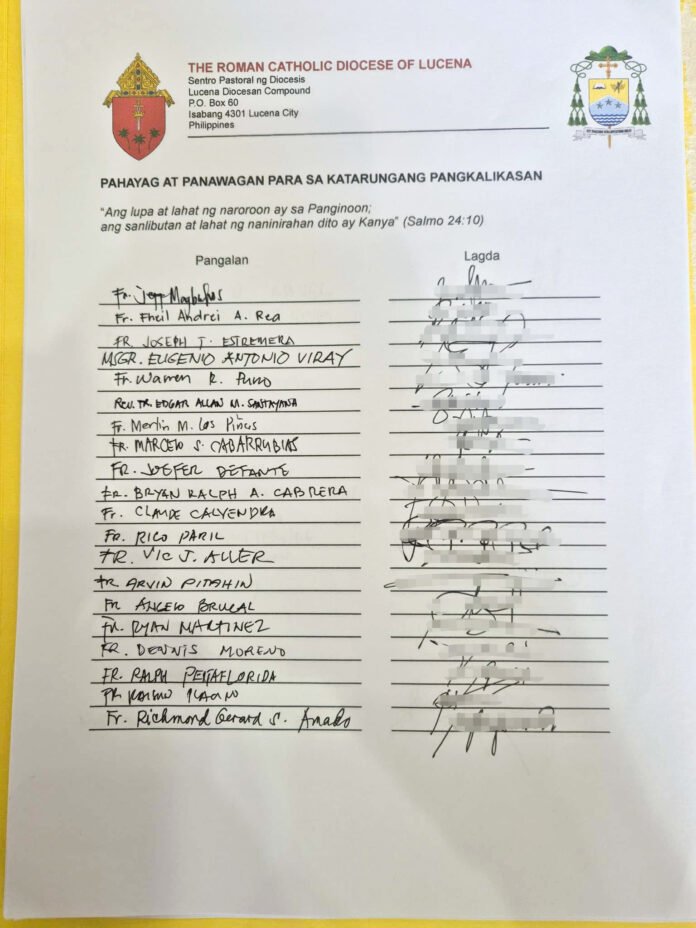 THE ROMAN CATHOLIC DIOCESE OF LUCENA
Sentro Pastoral ng Diocesis
Lucena Diocesan Compound
P.O. Box 60
Isabang 4301 Lucena City
Philippines
PAHAYAG AT PANAWAGAN PARA SA KATARUNGANG PANGKALIKASAN
“Ang lupa at lahat ng naroroon ay sa Panginoon;
ang sanlibutan at lahat ng naninirahan dito ay Kanya” (Salmo 24:10)
Pangalan Lagda
Fr.
Fr. Fheil Andrei A. Rea
FR. JOSEPH T. ESTREMERA
MSGR. EUGENIO ANTONIO VIRAY
Fr. Warren R. Puno
REV. FR. EDGAR ALLAN M. SANTAYANA
Fr. Merlin M. Las Piñas
FR. MARCELO S. CABARRUBIAS
FR. JOEFER DEFANTE
FR. BRYAN RALPH A. CABRERA
Fr. CLAUDE CALVENDRA
FR. RICO PARIL
FR. VIC J. ALLER
FR. ARVIN PITAHIN
FR ANGELO BRUCAL
FR. RYAN MARTINEZ
FR. DENNIS MORENO
FR. RALPH PEÑAFLORIDA
FR.
Fr. Richmond Gerard S.